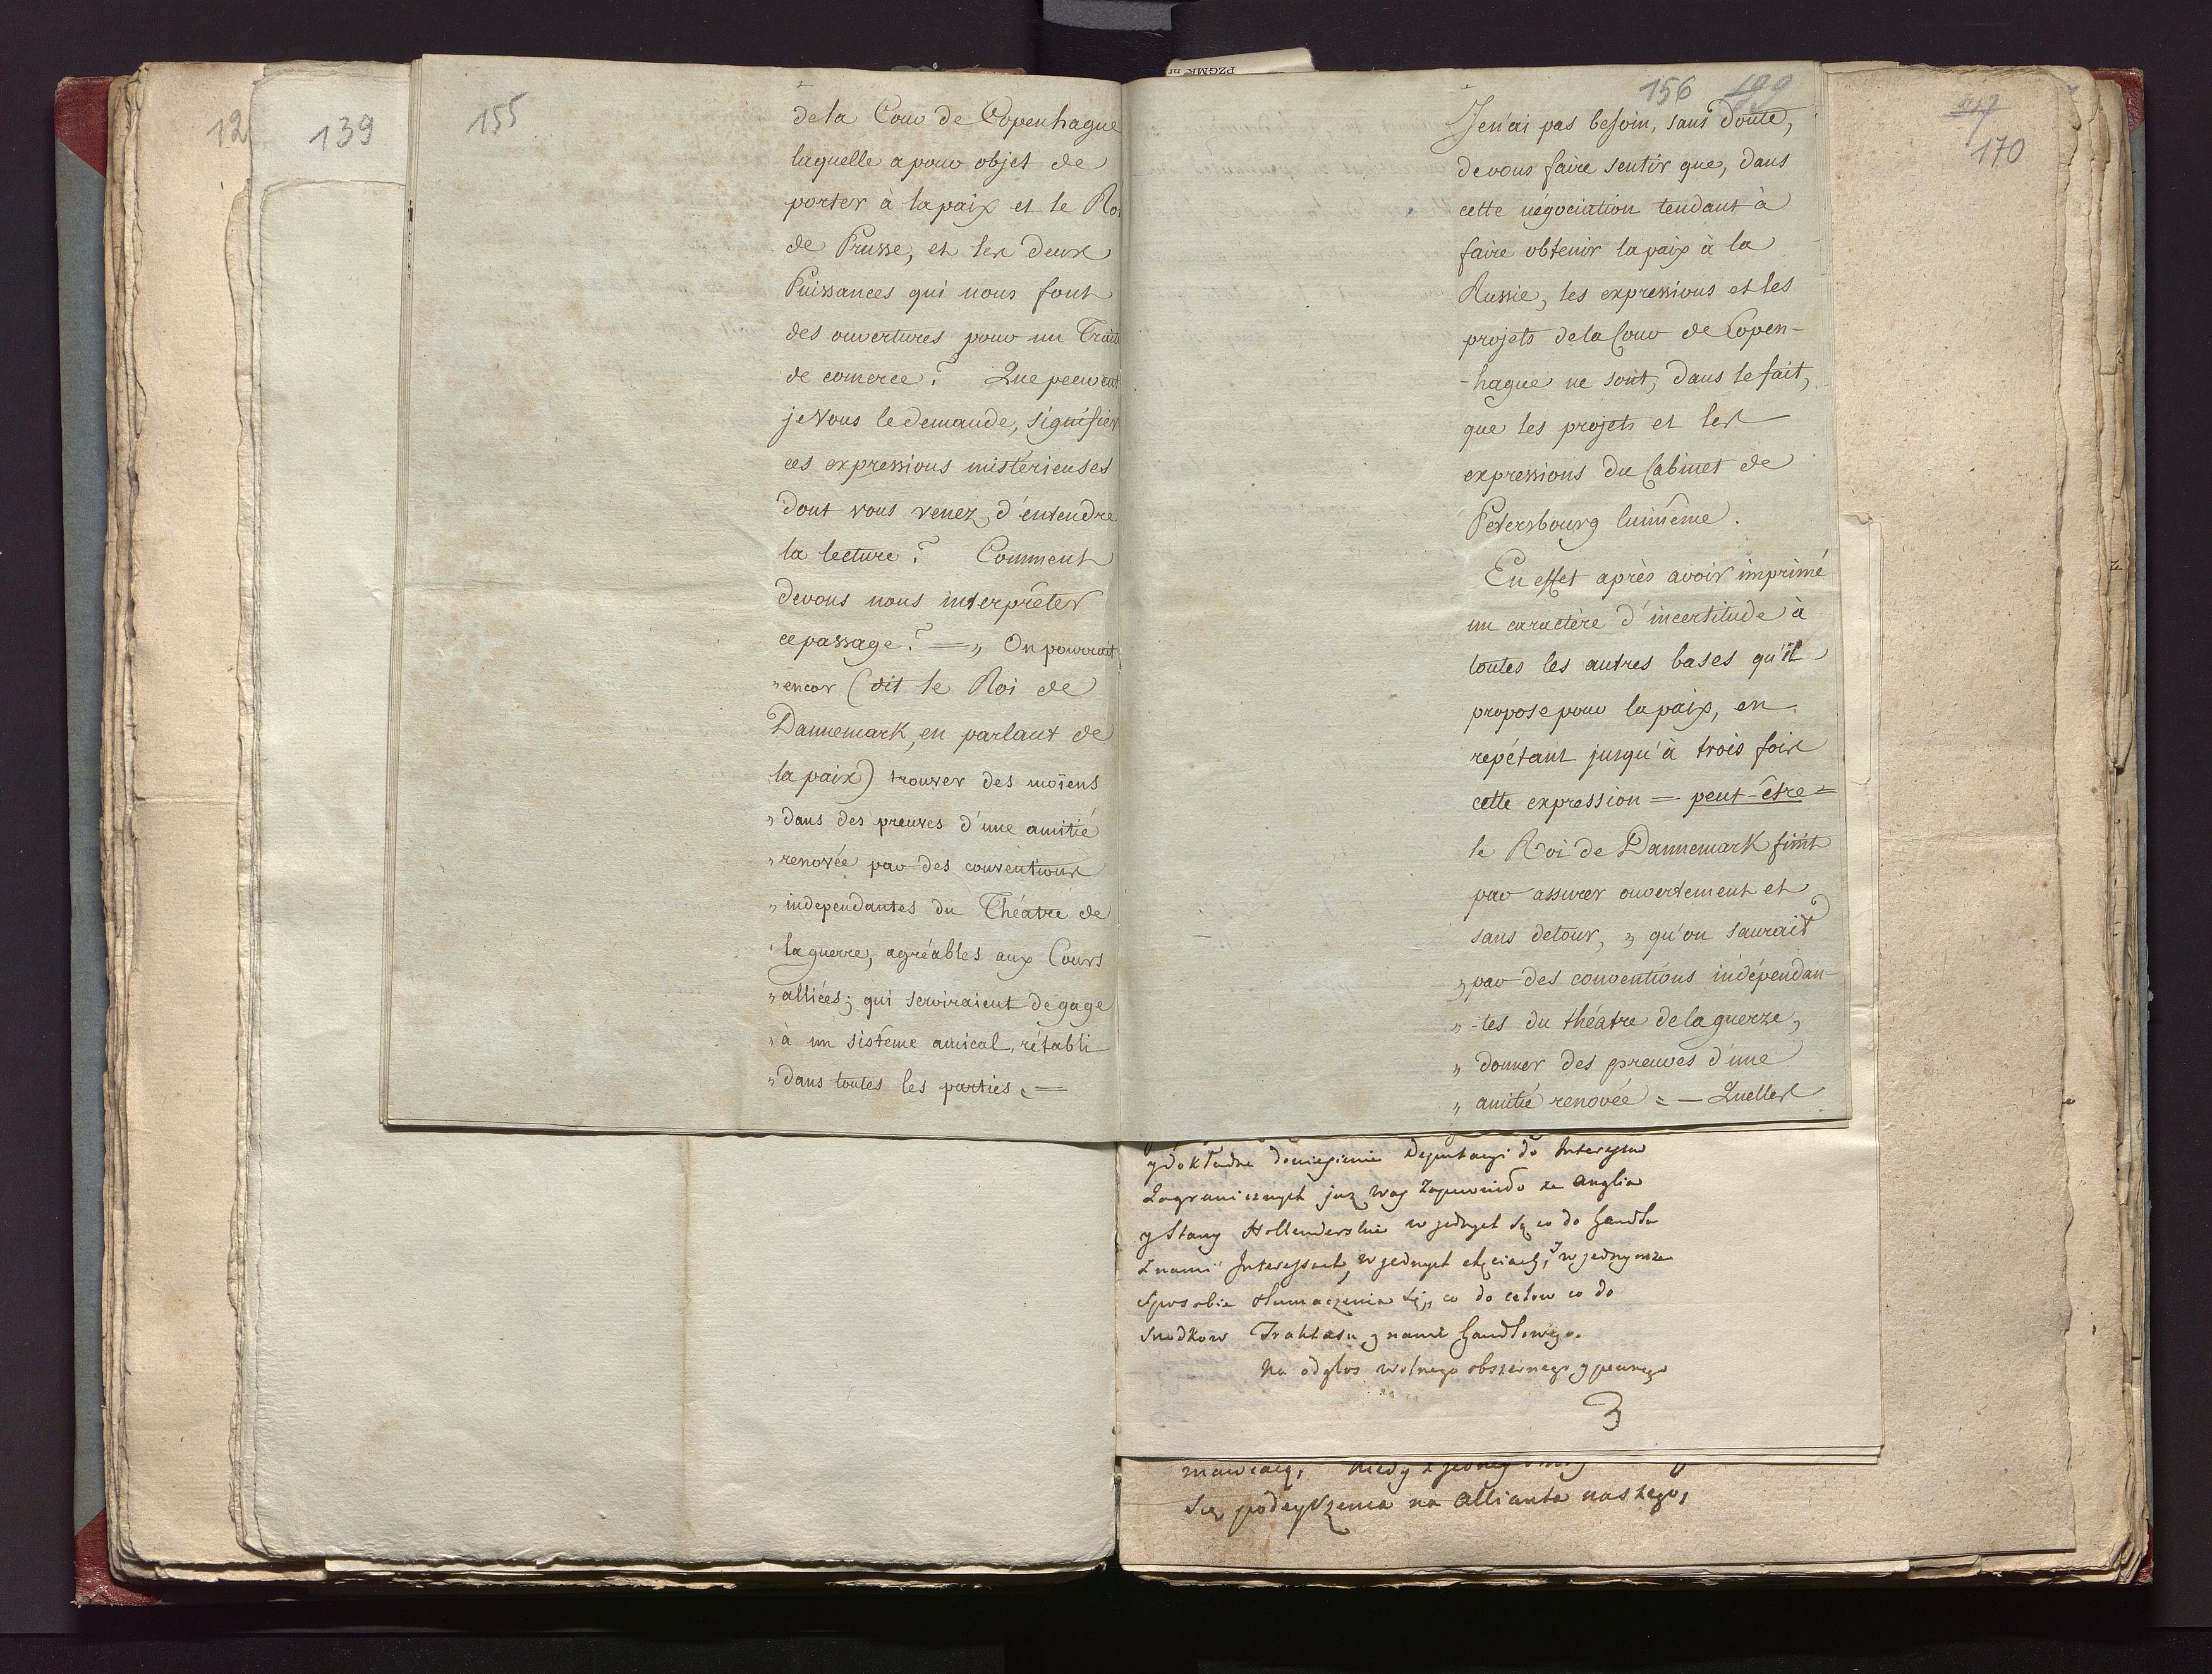 12
139
155
de la Cour de Copenhague
laquelle a pour objet de
porter à la paix et le Roi
de Prusse, et les deux
Puissances qui nous font
des ouvertures pour un Traité
de comerce? Que peuvent
je Vous le demande, signifier
ces expressions mistérieuses
dont vous venez d'entendre
la lecture? Comment
devons nous interprêter
ce passage? = „ On pourrait
„ encor (dit le Roi de
Dannemark, en parlant de
la paix) trouver des moïens
„ dans des preuves d'une amitié
„ renovée par des conventions
„ independantes du Théatre de
„ la guerre, agréables aux Cours
„ alliées; qui serviraient de gage
„ à un sistême amical, rétabli
„ dans toutes les parties. =
156 199
Je n'ai pas besoin, sans doute,
de vous faire sentir que, dans
cette négociation tendant à
faire obtenir la paix à la
Russie, les expressions et les
projets de la Cour de Copen-
-hague ne sont, dans le fait,
que les projets et les
expressions du Cabinet de
Petersbourg luimême.
En effet après avoir imprimé
un caractère d'incertitude à
toutes les autres bases qu'il
propose pour la paix, en
repétant jusqu'à trois fois
cette expression = peut-être =
le Roi de Dannemark finit
par assurer ouvertement et
sans detour, „ qu'on saurait
„ par des conventions indépendan-
„ -tes du théatre de la guerre,
„ donner des preuves d'une
„ amitié renovée = — Quelles
170
y dokładne doniesienie Deputacyi do Interesów
Zagranicznych już Was zapewniło że Anglia
y Stany Hollenderskie w jednych są co do handlu
z nami Interessach, w jednych chęciach, w jednymże
sposobie tłumaczenia się, co do celow co do
srodkow Traktatu z nami handlowego.
Na odgłos wolnego obszernego y pewnego
3
mawiaią, kiedy z jedney
się podeyrzenia na Allianta naszego,